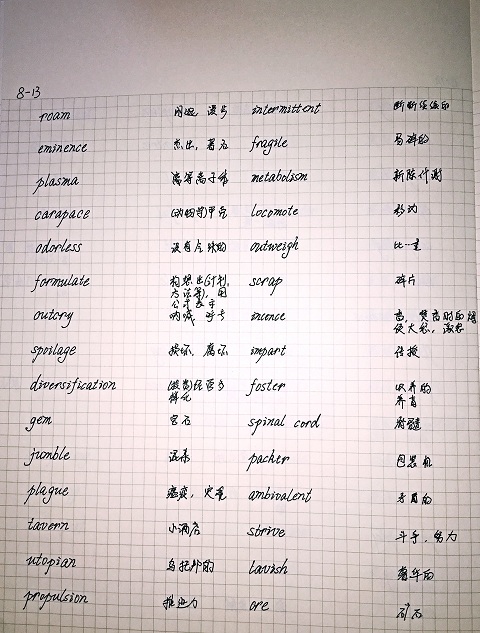 8-13
roam 闲逛，漫步 intermittent 断断续续的
eminence 杰出，著名 fragile 易碎的
plasma 等离子体 metabolism 新陈代谢
carapace (动物等)甲壳 locomote 移动
odorless 没有气味的 outweigh 比…重
formulate 构想出(计划, scrap 碎片
方法等)，用
公式表示
outcry 呐喊，呼号 incence 香，焚香时的烟
使大怒，激怒
spoilage 损坏，腐坏 impart 传授
diversification 经营多 foster 收养的
样化 养育
gem 宝石 spinal cord 脊髓
jumble 混杂 packer 包装机
plague 瘟疫，灾 ambivalent 矛盾的
tavern 小酒店 strive 斗争，努力
utopian 乌托邦的 lavish 奢华的
propulsion 推进力 ore 矿石